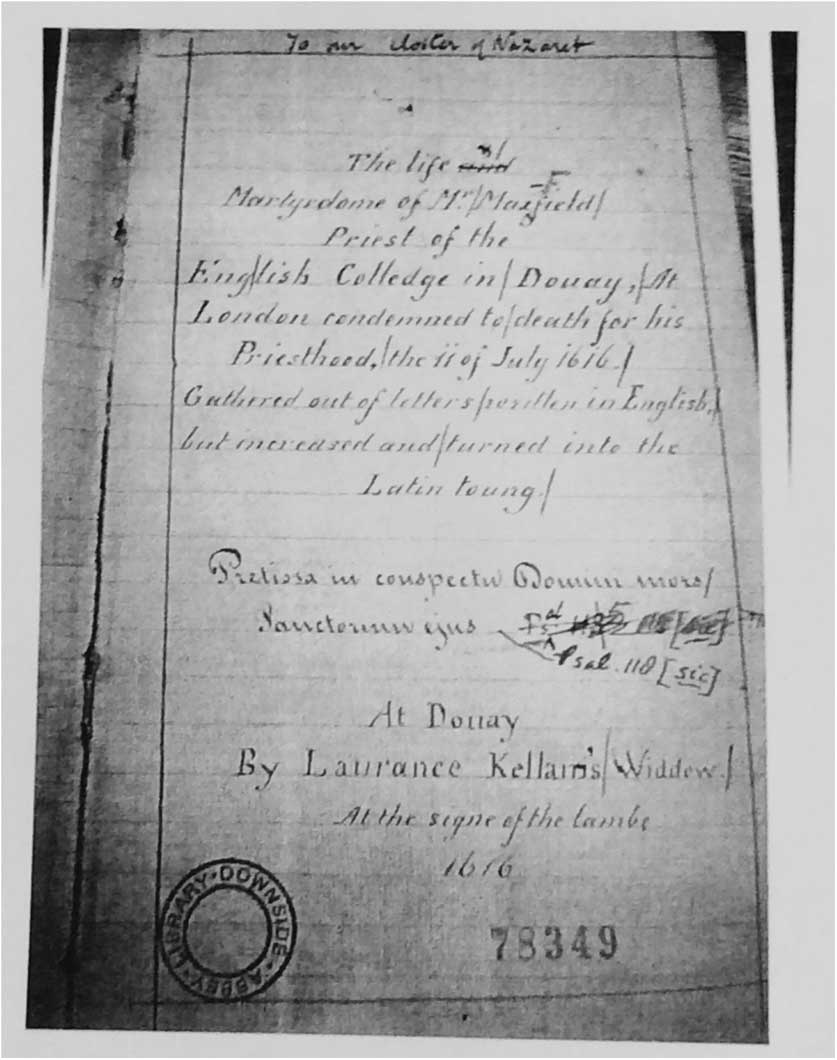 To our cloiter of Nazaret
The life and &/
Martyrdome of Mr/Maxfield/
Priest of the
English Colledge in/Douay,/At
London condemned to/death for his
Priesthood,/the 11 of July 1616./
Gathered out of letters/written in English,/
but increased and/turned into the
Latin toung./
Pretiosa in conspectu Domini mors/
Sanctorum ejus
Psal. 118 [sic]
At Douay
By Laurance Kellam's/Widdow./
At the signe of the lambe
1616
LIBRARY · DOWNSIDE · ABBEY
78349